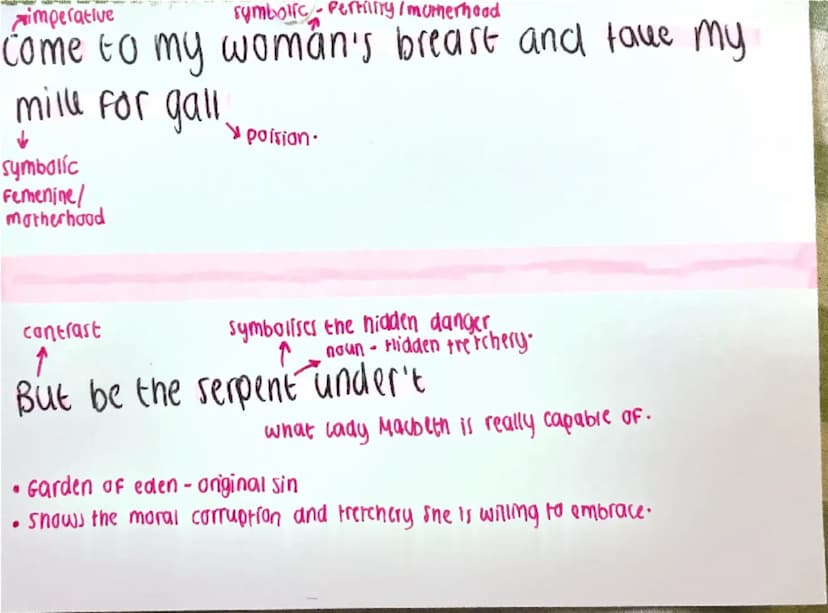 imperative
symbolic - Fertility/motherhood
Come to my woman's breast and take my
milk for gall
poision.
symbolic
Femenine/
motherhood
contrast
symbolises the hidden danger
noun - Hidden tretchery.
But be the serpent under't
what Lady Macbeth is really capable of.
• Garden of eden - original sin
• Shows the moral corruption and tretchery she is willing to embrace.